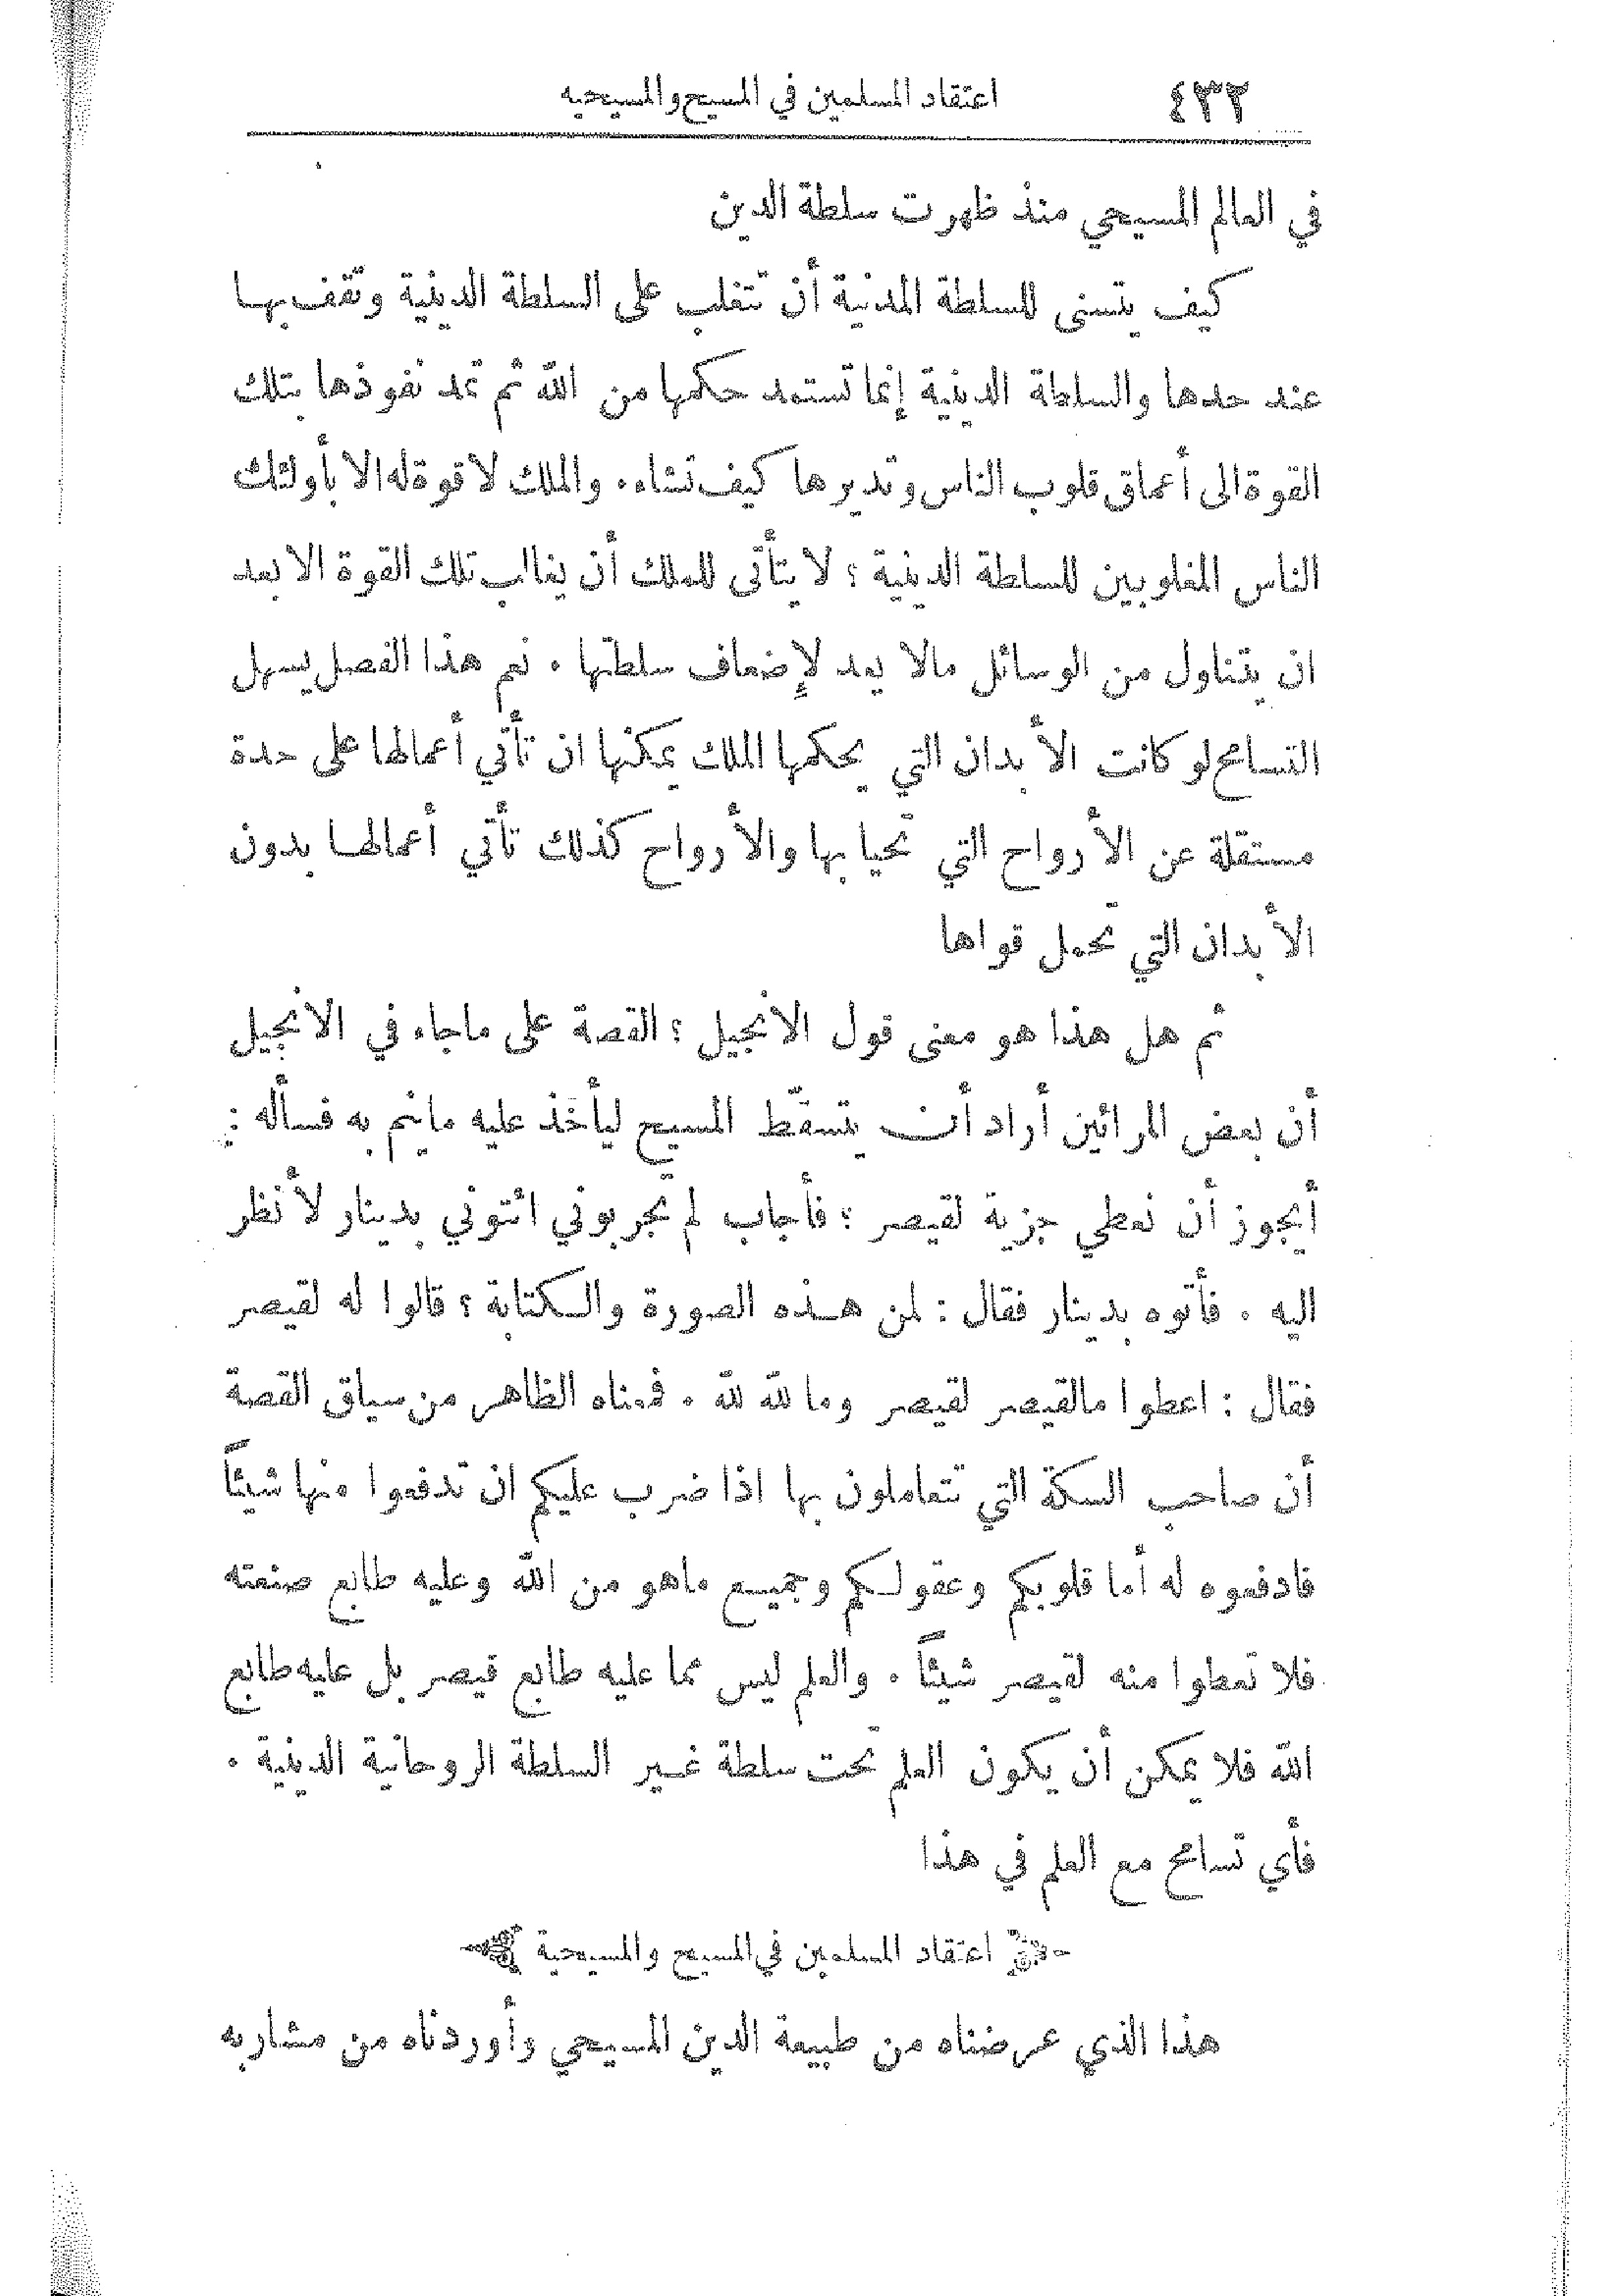 ٤٣٢ اعتقاد المسلمين في المسيح والمسيحيه
في العالم المسيحي منذ ظهرت سلطة الدين
كيف يتسنى للسلطة المدنية أن تتغلب على السلطة الدينية وتقف بها
عند حدها والسلطة الدينية إنما تستمد حكمها من الله ثم تمد نفوذها بتلك
القوة الى أعماق قلوب الناس وتديرها كيف تشاء. والملك لا قوة له الا بأولئك
الناس المغلوبين للسلطة الدينية ؟ لا يتأتى للملك أن يغالب تلك القوة الا بعد
ان يتناول من الوسائل مالا يعد لإضعاف سلطتها . نعم هذا الفصل يسهل
التسامح لو كانت الأبدان التي يحكمها الملك يمكنها ان تأتي أعمالها على حدة
مستقلة عن الأرواح التي تحيا بها والأرواح كذلك تأتي أعمالها بدون
الأبدان التي تحمل قواها
ثم هل هذا هو معنى قول الانجيل ؟ القصة على ماجاء في الانجيل
أن بعض المرائين أراد أن يتسقّط المسيح ليأخذ عليه ماينم به فسأله :
أيجوز أن نعطي جزية لقيصر ؟ فأجاب لم تجربوني ائتوني بدينار لأنظر
اليه . فأتوه بدينار فقال : لمن هذه الصورة والكتابة ؟ قالوا له لقيصر
فقال : اعطوا مالقيصر لقيصر وما لله لله . فمعناه الظاهر من سياق القصة
أن صاحب السكة التي تتعاملون بها اذا ضرب عليكم ان تدفعوا منها شيئاً
فادفعوه له أما قلوبكم وعقولكم وجميع ماهو من الله وعليه طابع صنعته
فلا تعطوا منه لقيصر شيئاً . والعلم ليس مما عليه طابع قيصر بل عليه طابع
الله فلا يمكن أن يكون العلم تحت سلطة غير السلطة الروحانية الدينية .
فأي تسامح مع العلم في هذا
اعتقاد المسلمين في المسيح والمسيحية
هذا الذي عرضناه من طبيعة الدين المسيحي وأوردناه من مشاربه